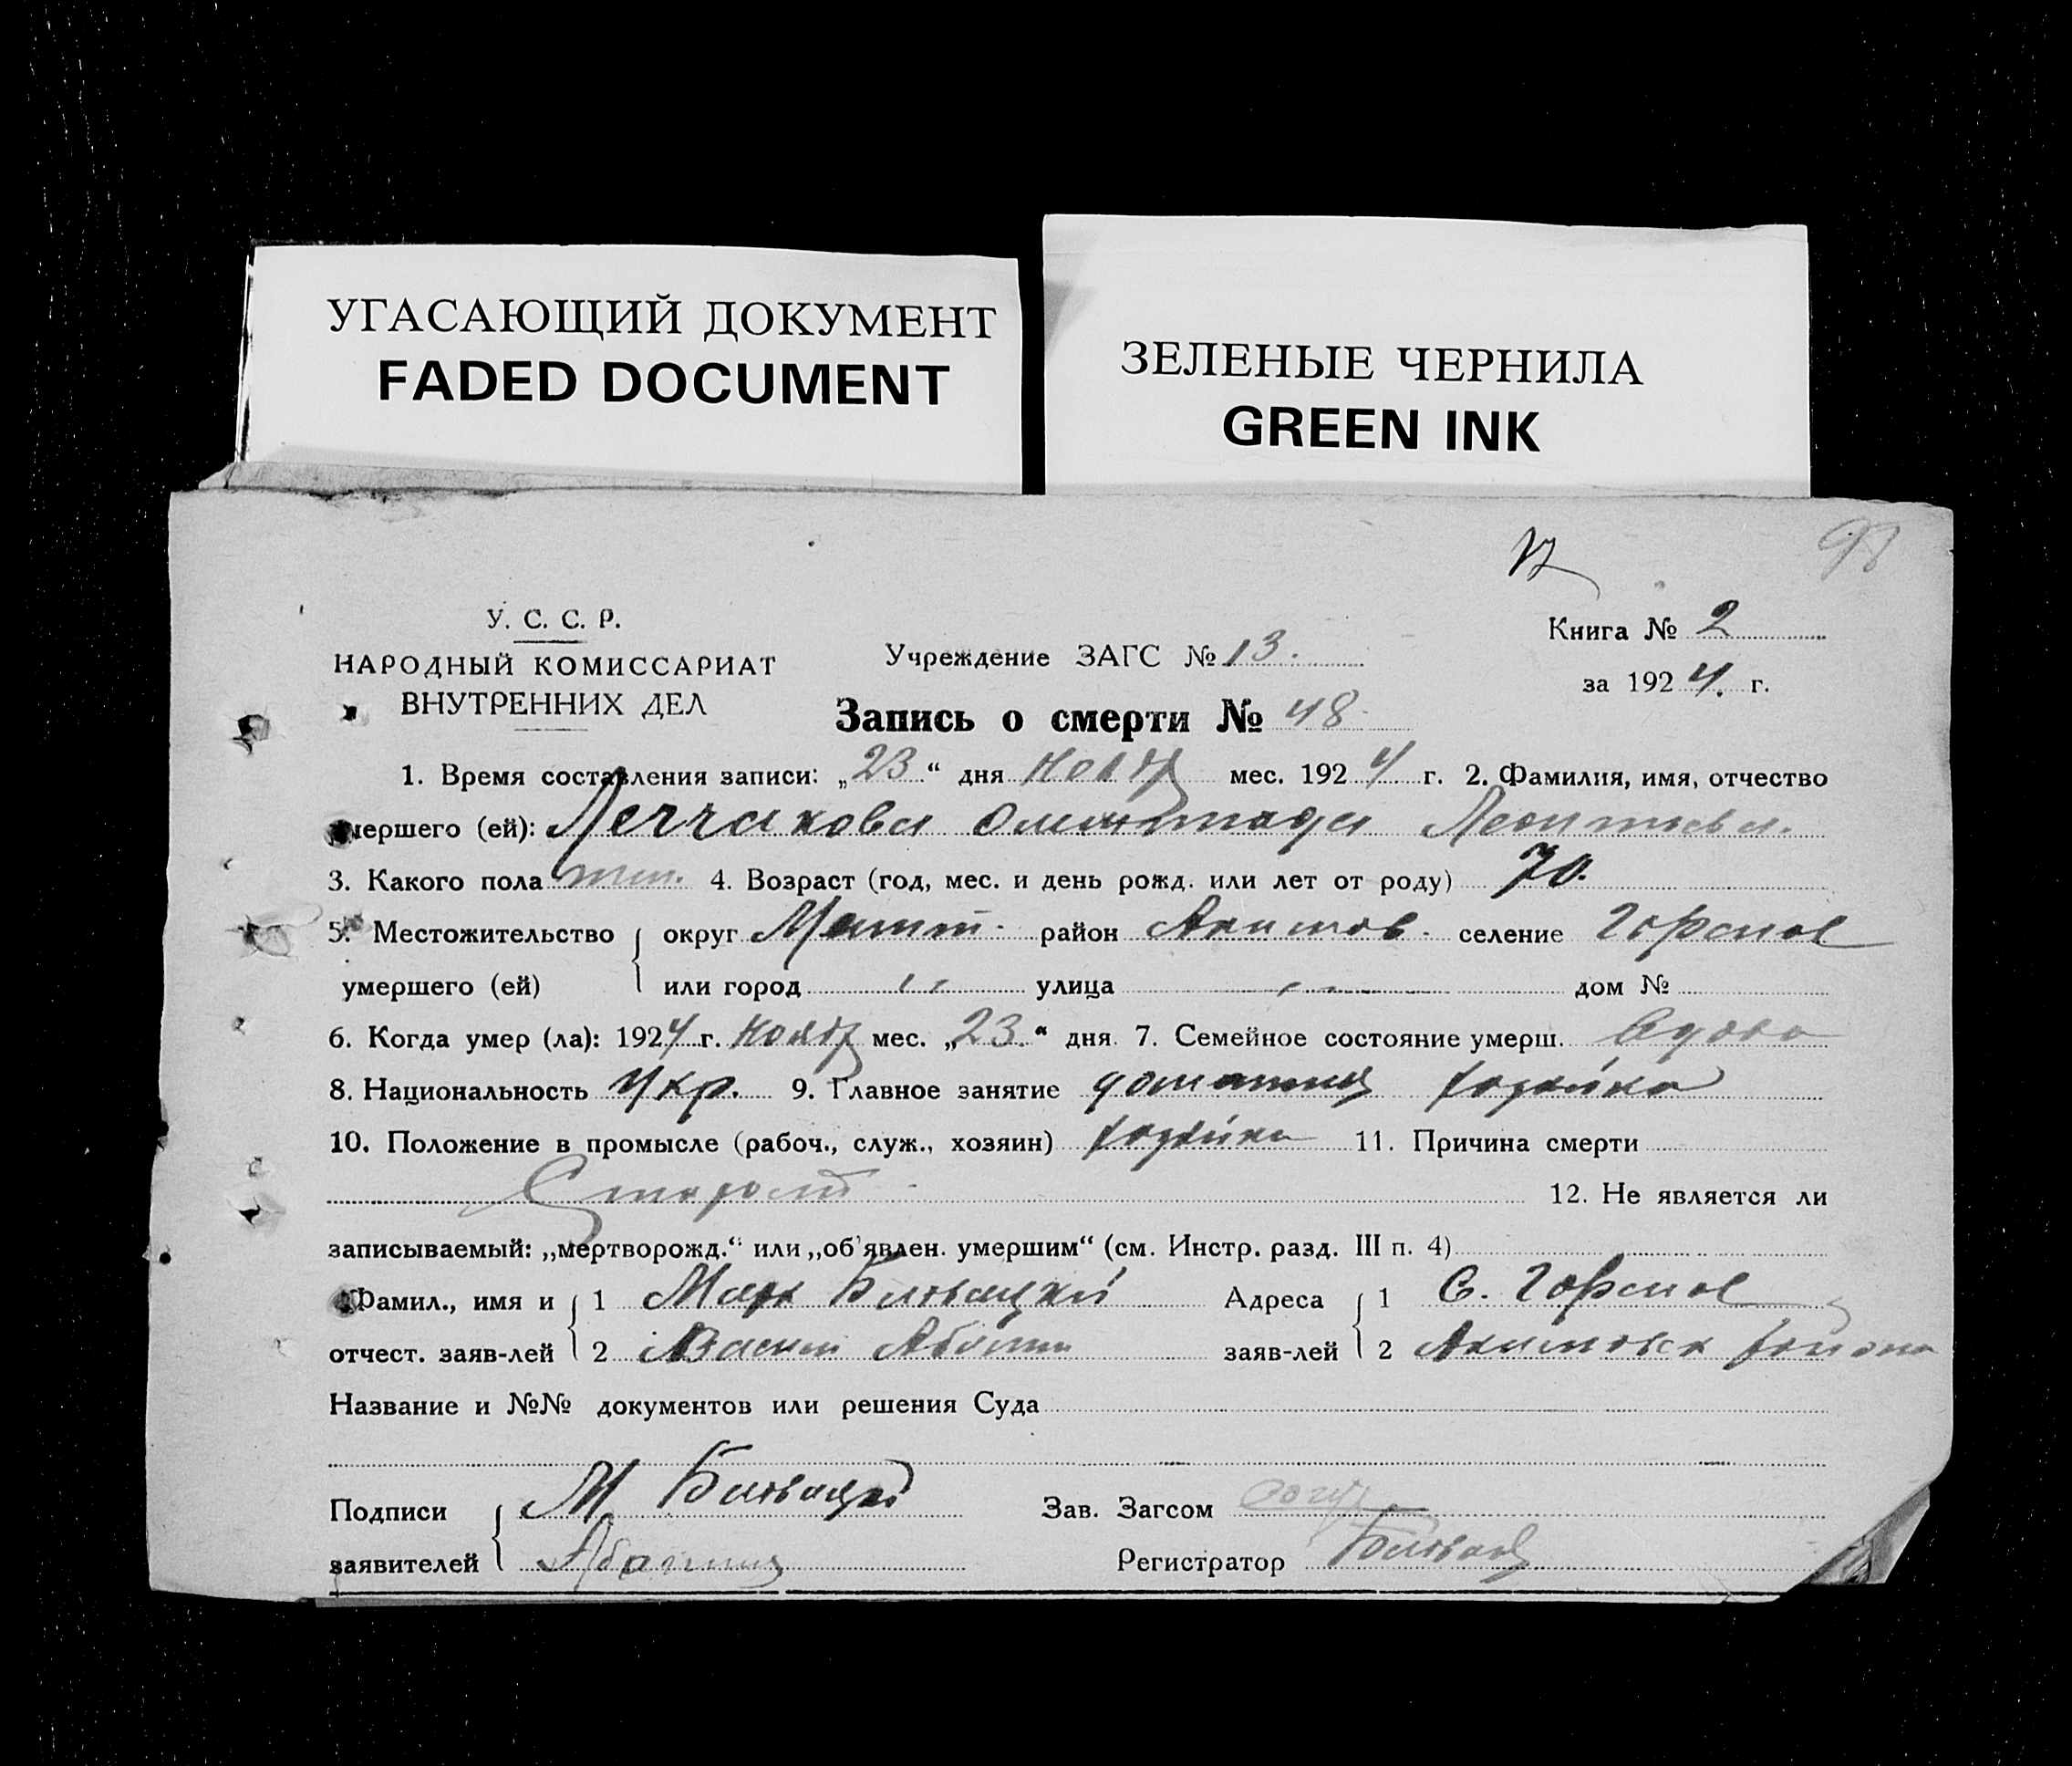 УГАСАЮЩИЙ ДОКУМЕНТ
FADED DOCUMENT
ЗЕЛЕНЫЕ ЧЕРНИЛА
GREEN INK
98
У. С. С. Р.
НАРОДНЫЙ КОМИССАРИАТ
ВНУТРЕННИХ ДЕЛ
Учреждение ЗАГС № 13.
Книга № 2
за 1924. г.
Запись о смерти № 48
1. Время составления записи: „23“ дня нояб мес. 1924 г. 2. Фамилия, имя, отчество
умершего (ей):
3. Какого пола жен. 4. Возраст (год, мес. и день рожд. или лет от роду) 70.
5. Местожительство округ Мелит. район Акимов. селение Горелое
умершего (ей) или город " улица " дом №
6. Когда умер (ла): 1924 г. нояб мес. „23.“ дня 7. Семейное состояние умерш. вдова
8. Национальность Укр. 9. Главное занятие хозяйка
10. Положение в промысле (рабоч., служ., хозяин) хозяйка 11. Причина смерти
Старость
12. Не является ли
записываемый: „мертворожд.“ или „об'явлен. умершим“ (см. Инстр. разд. III п. 4)
Фамил., имя и 1 Марк Адреса 1 С. Горелое
отчест. заяв-лей 2 заяв-лей 2 Акимовск района
Название и №№ документов или решения Суда
Подписи М
заявителей
Зав. Загсом
Регистратор